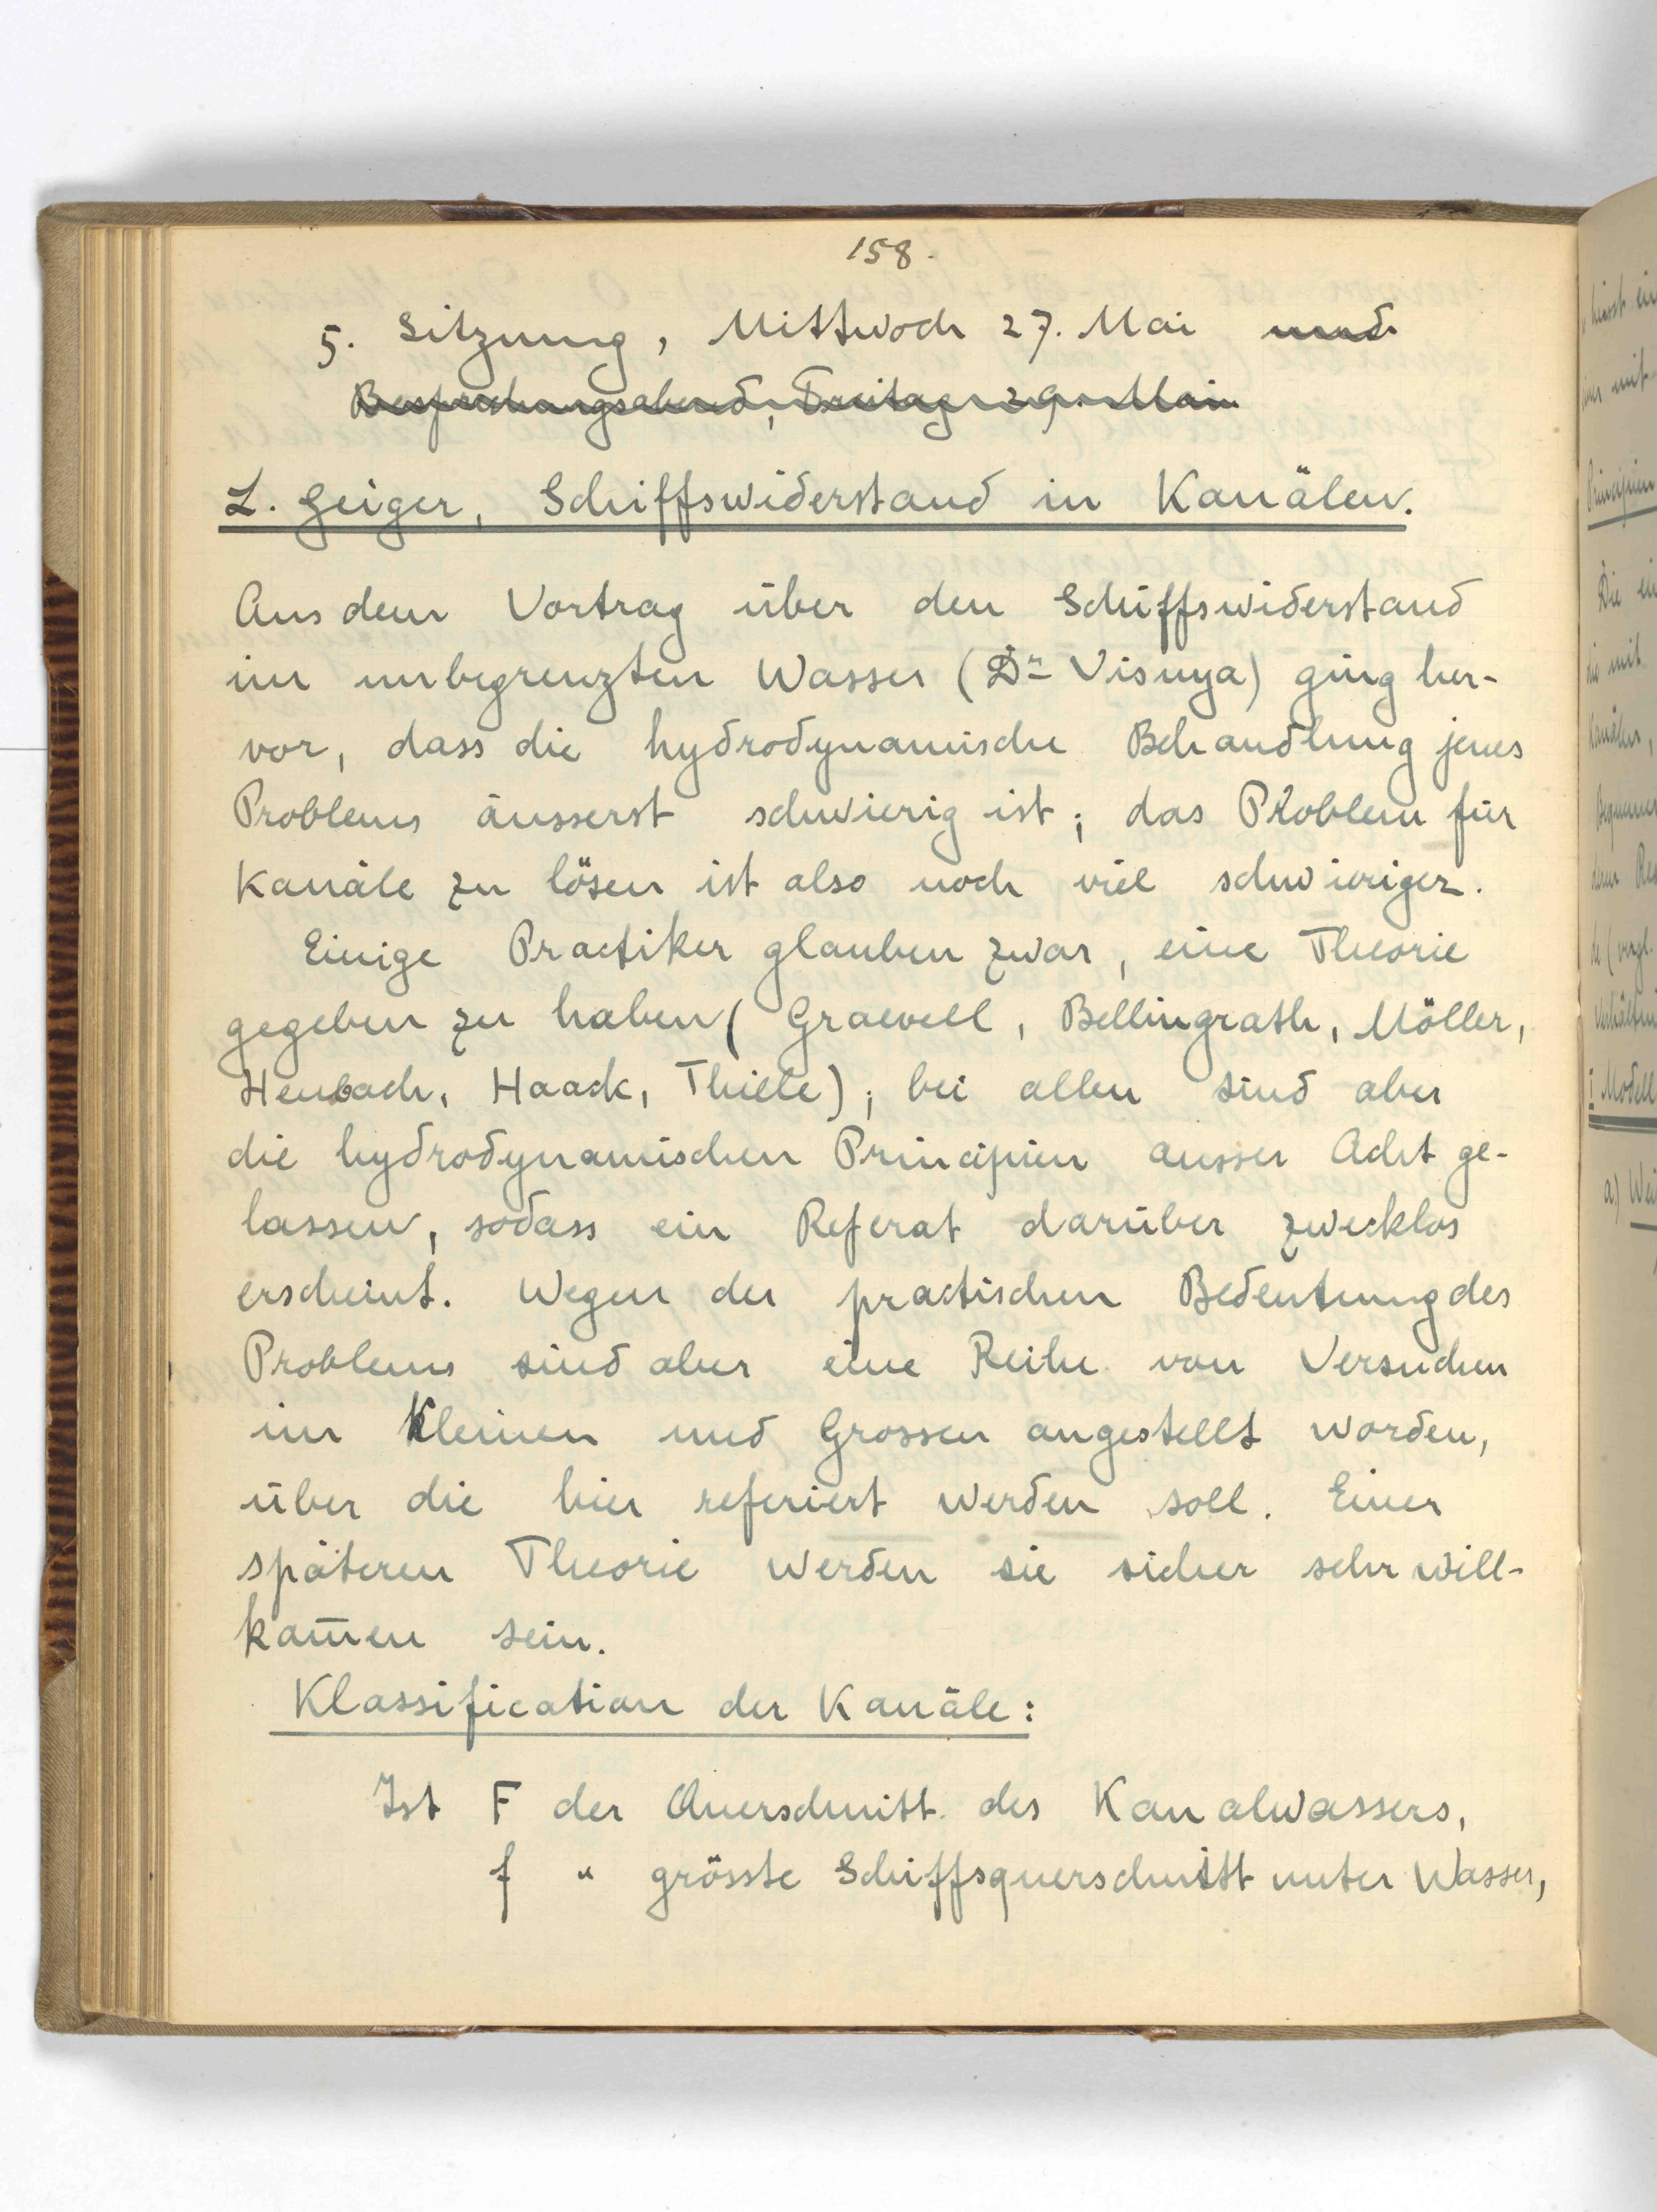 158.
5. Sitzung, Mittwoch 27. Mai und
Besprechungsabend, Freitag 29. Mai
L. Geiger, Schiffswiderstand in Kanälen.
Aus dem Vortrag über den Schiffswiderstand
im unbegrenzten Wasser (Dr Visnya) ging her-
vor, dass die hydrodynamische Behandlung jenes
Problems äusserst schwierig ist; das Problem für
Kanäle zu lösen ist also noch viel schwieriger.
Einige Practiker glauben zwar, eine Theorie
gegeben zu haben (Graevell, Bellingrath, Möller,
Heubach, Haack, Thiele); bei allen sind aber
die hydrodynamischen Principien ausser Acht ge-
lassen, sodass ein Referat darüber zwecklos
erscheint. Wegen der practischen Bedeutung des
Problems sind aber eine Reihe von Versuchen
im Kleinen und Grossen angestellt worden,
über die hier referiert werden soll. Einer
späteren Theorie werden sie sicher sehr will-
kom̅en sein.
Klassification der Kanäle:
Ist F der Querschnitt des Kanalwassers,
f " grösste Schiffsquerschnitt unter Wasser,
Principien
Die
mit
Kanälen,
I Modell
a.)